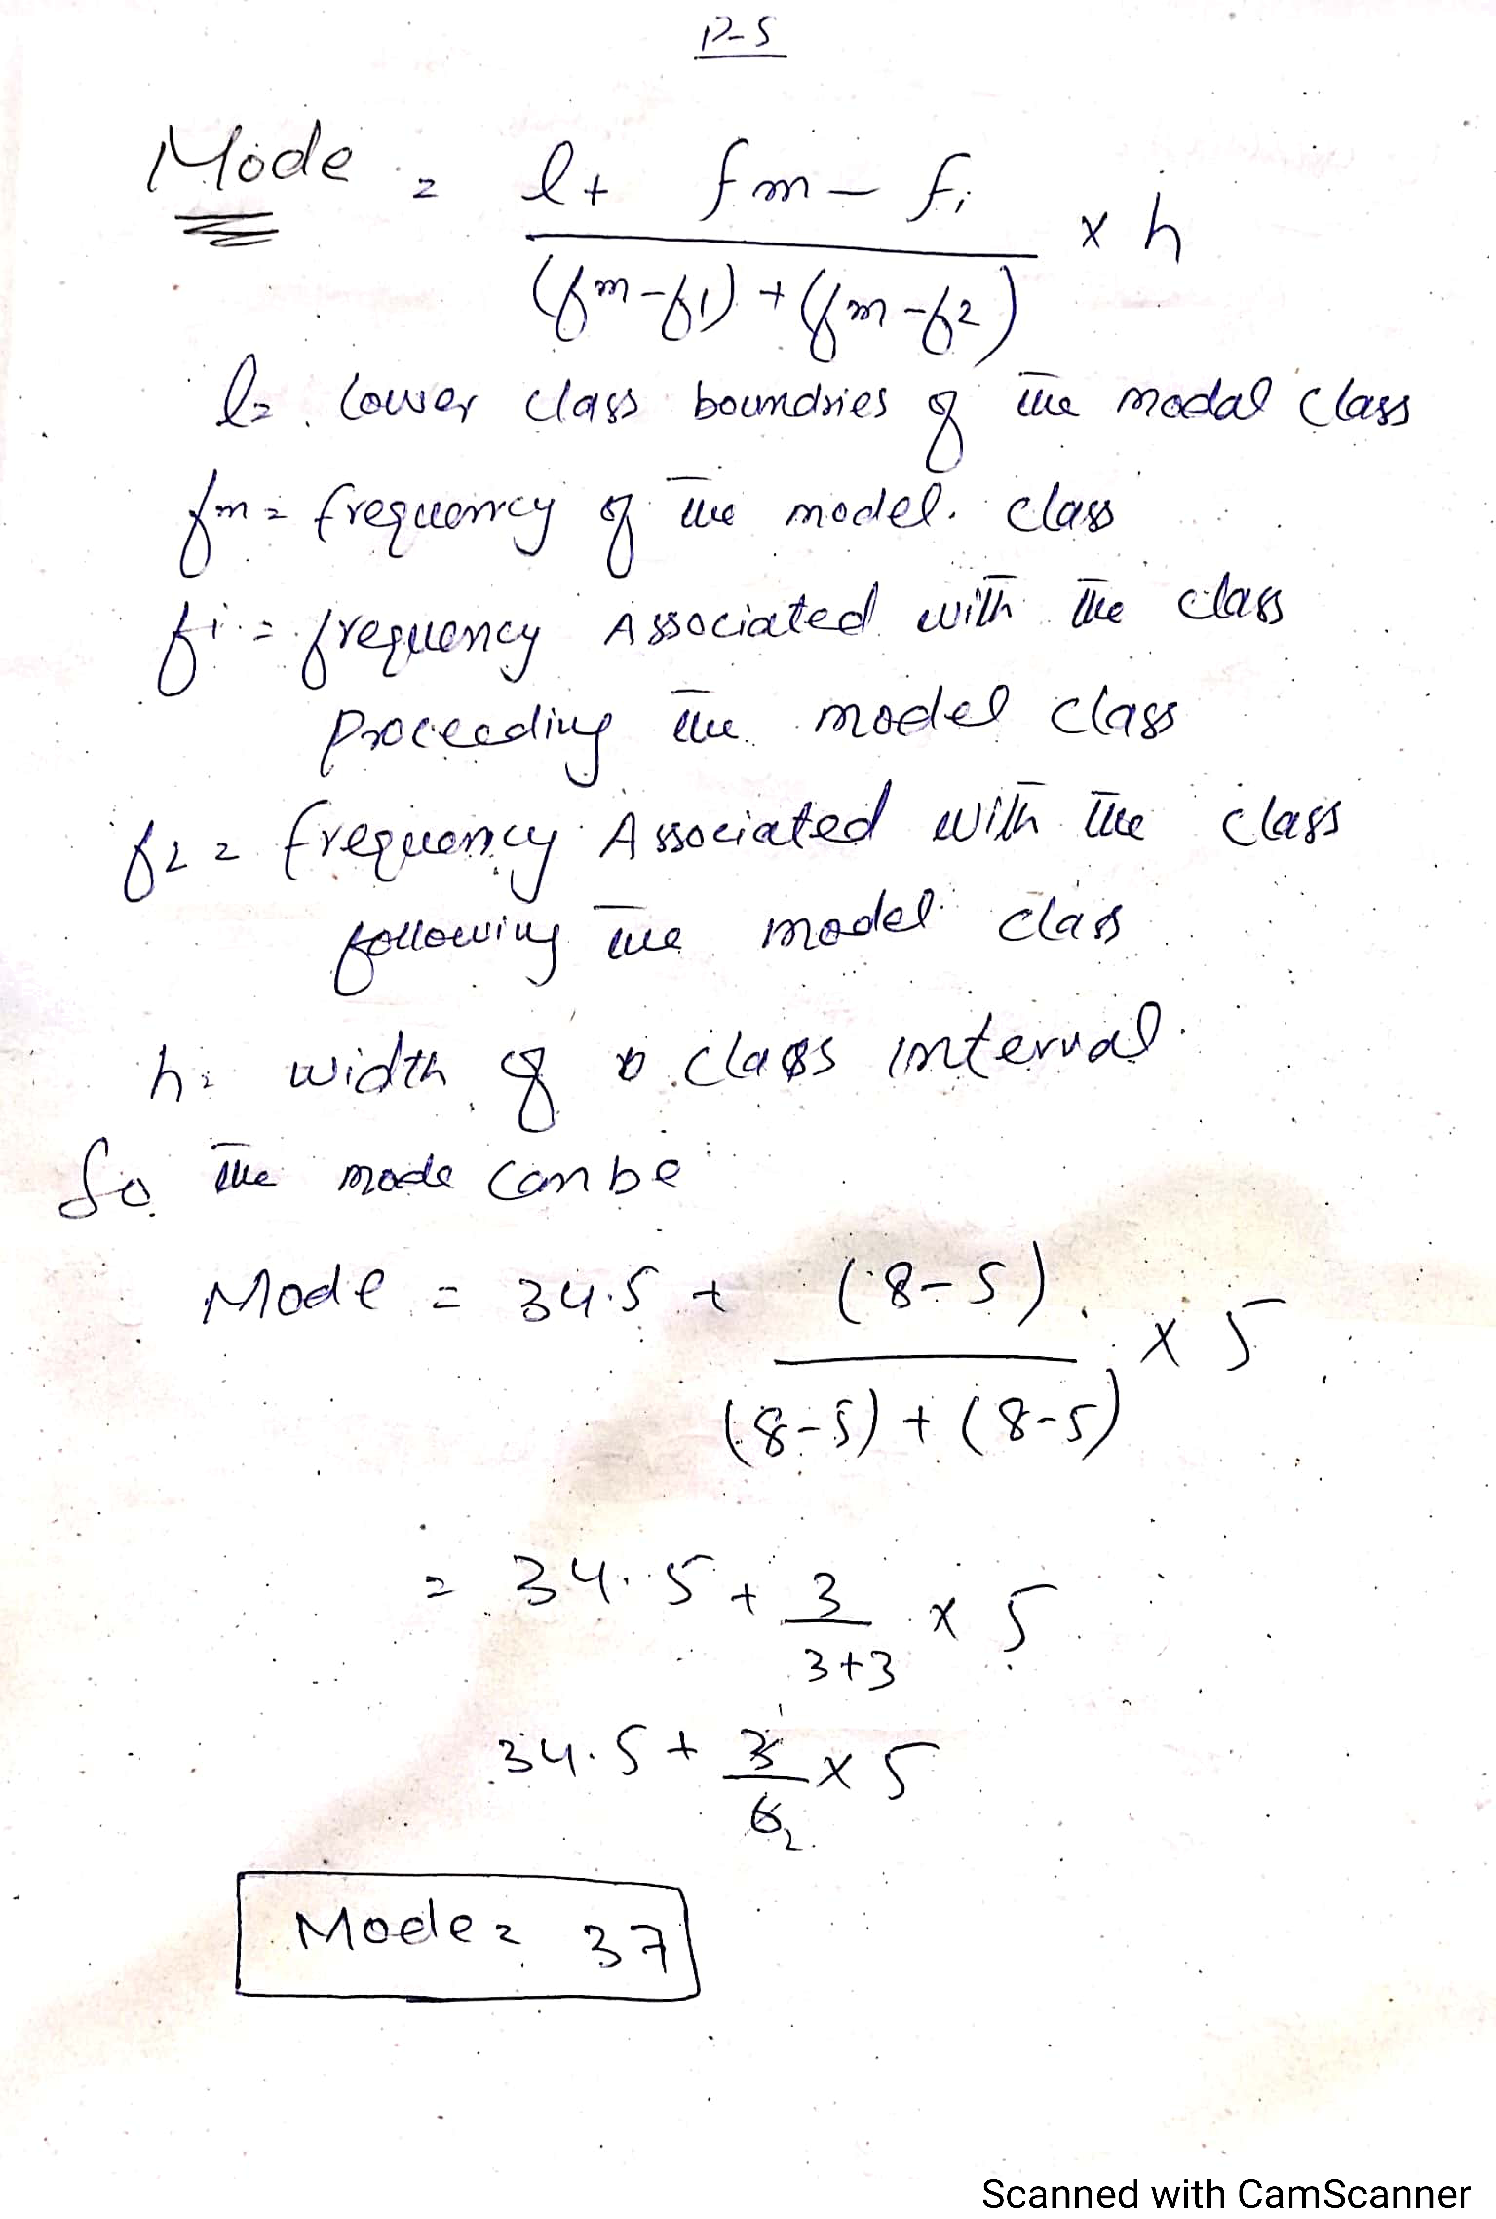 P-5
Mode = l + fm - f1
x h
(fm-f1) + (fm-f2)
l = lower class boundries of the modal class
fm = frequency of the model class
f1 = frequency Associated with the class
Proceeding the model class
f2 = frequency Associated with the class
following the model class
h = width of class interval
So the mode can be
Mode = 34.5 + (8-5)
x 5
(8-5) + (8-5)
= 34.5 + 3 x 5
3+3
34.5 + 3 x 5
6
Mode = 37
Scanned with CamScanner